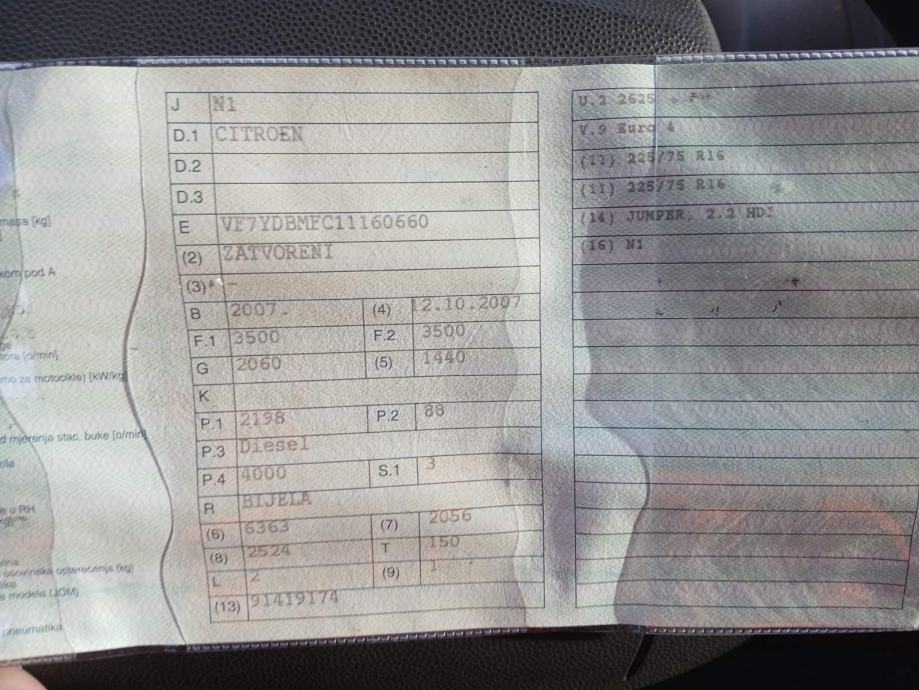 J N1
D.1 CITROEN
D.2
D.3
E VF7YDBMFC11160660
(2) ZATVORENI
(3) -
B 2007. (4) 12.10.2007
F.1 3500 F.2 3500
G 2060 (5) 1440
K
P.1 2198 P.2 88
P.3 Diesel
P.4 4000 S.1 3
R BIJELA
(6) 6363 (7) 2056
(8) 2524 T 150
L 2 (9) 1
(13) 91419174
U.2 2625
V.9 Euro 4
(11) 225/75 R16
(11) 225/75 R16
(14) JUMPER, 2.2 HDI
(16) N1
masa [kg]
kom pod A
[o/min]
mo za motocikle) [kW/kg]
d mjerenja stac. buke [o/min]
u RH
osovinska opterećenja [kg]
modela (JOM)
pneumatika